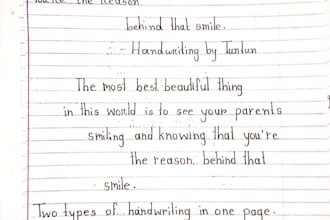 the Reason
behind that smile.
∴- Handwriting by Tuntun
The most best beautiful thing
in this world is to see your parents
smiling and knowing that you're
the reason behind that
smile.
Two types of handwriting in one page.